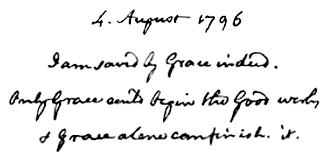 4. August 1796
I am saved by Grace indeed.
Only Grace could begin the Good work,
& Grace alone can finish. it.